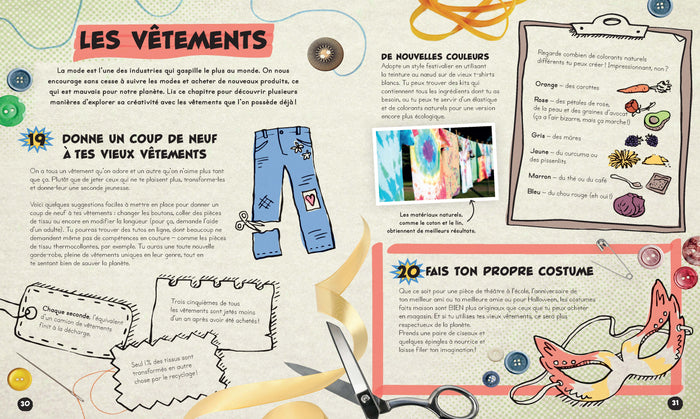 LES VÊTEMENTS
La mode est l'une des industries qui gaspille le plus au monde. On nous
encourage sans cesse à suivre les modes et acheter de nouveaux produits, ce
qui est mauvais pour notre planète. Lis ce chapitre pour découvrir plusieurs
manières d'explorer sa créativité avec les vêtements que l'on possède déjà !
19 DONNE UN COUP DE NEUF
À TES VIEUX VÊTEMENTS
On a tous un vêtement qu'on adore et un autre qu'on n'aime plus tant
que ça. Plutôt que de jeter ceux qui ne te plaisent plus, transforme-les
et donne-leur une seconde jeunesse.
Voici quelques suggestions faciles à mettre en place pour donner un
coup de neuf à tes vêtements : changer les boutons, coller des pièces
de tissu ou encore en modifier la longueur (pour ça, demande l'aide
d'un adulte). Tu pourras trouver des tutos en ligne, dont beaucoup ne
demandent même pas de compétences en couture – comme les pièces
de tissu thermocollantes, par exemple. Tu auras une toute nouvelle
garde-robe, pleine de vêtements uniques en leur genre, tout en
te sentant bien de sauver la planète.
Chaque seconde, l'équivalent
d'un camion de vêtements
finit à la décharge.
Trois cinquièmes de tous
les vêtements sont jetés moins
d'un an après avoir été achetés !
Seul 1% des tissus sont
transformés en autre
chose par le recyclage !
30
DE NOUVELLES COULEURS
Adopte un style festivalier en utilisant
la teinture au nœud sur de vieux t-shirts
blancs. Tu peux trouver des kits qui
contiennent tous les ingrédients dont tu as
besoin, ou tu peux te servir d'un élastique
et de colorants naturels pour une version
encore plus écologique.
Les matériaux naturels,
comme le coton et le lin,
obtiennent de meilleurs résultats.
Regarde combien de colorants naturels
différents tu peux créer ! Impressionnant, non ?
Orange – des carottes
Rose – des pétales de rose,
de la peau et des graines d'avocat
(ça a l'air bizarre, mais ça marche !)
Gris – des mûres
Jaune – du curcuma ou
des pissenlits
Marron – du thé ou du café
Bleu – du chou rouge (eh oui !)
20 FAIS TON PROPRE COSTUME
Que ce soit pour une pièce de théâtre à l'école, l'anniversaire de
ton meilleur ami ou ta meilleure amie ou pour Halloween, les costumes
faits maison sont BIEN plus originaux que ceux que tu peux acheter
en magasin. Et si tu utilises tes vieux vêtements, ce sera plus
respectueux de la planète.
Prends une paire de ciseaux et
quelques épingles à nourrice et
laisse filer ton imagination !
31